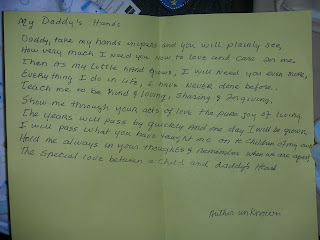 My Daddy's Hands
Daddy, take my hands in yours and you will plainly see,
How very much I need you now to love and care for me.
Then as my little hand grows, I will need you even more,
Everything I do in life, I have NEVER done before.
Teach me to be kind & loving, sharing & forgiving.
Show me through your acts of love the pure joy of living.
The years will pass by quickly And one day I will be grown,
I will pass what you have taught me on to children of my own
Hold me always in your thoughts & remember when we are apart
The special love between a child and daddy's Heart
Author unknown